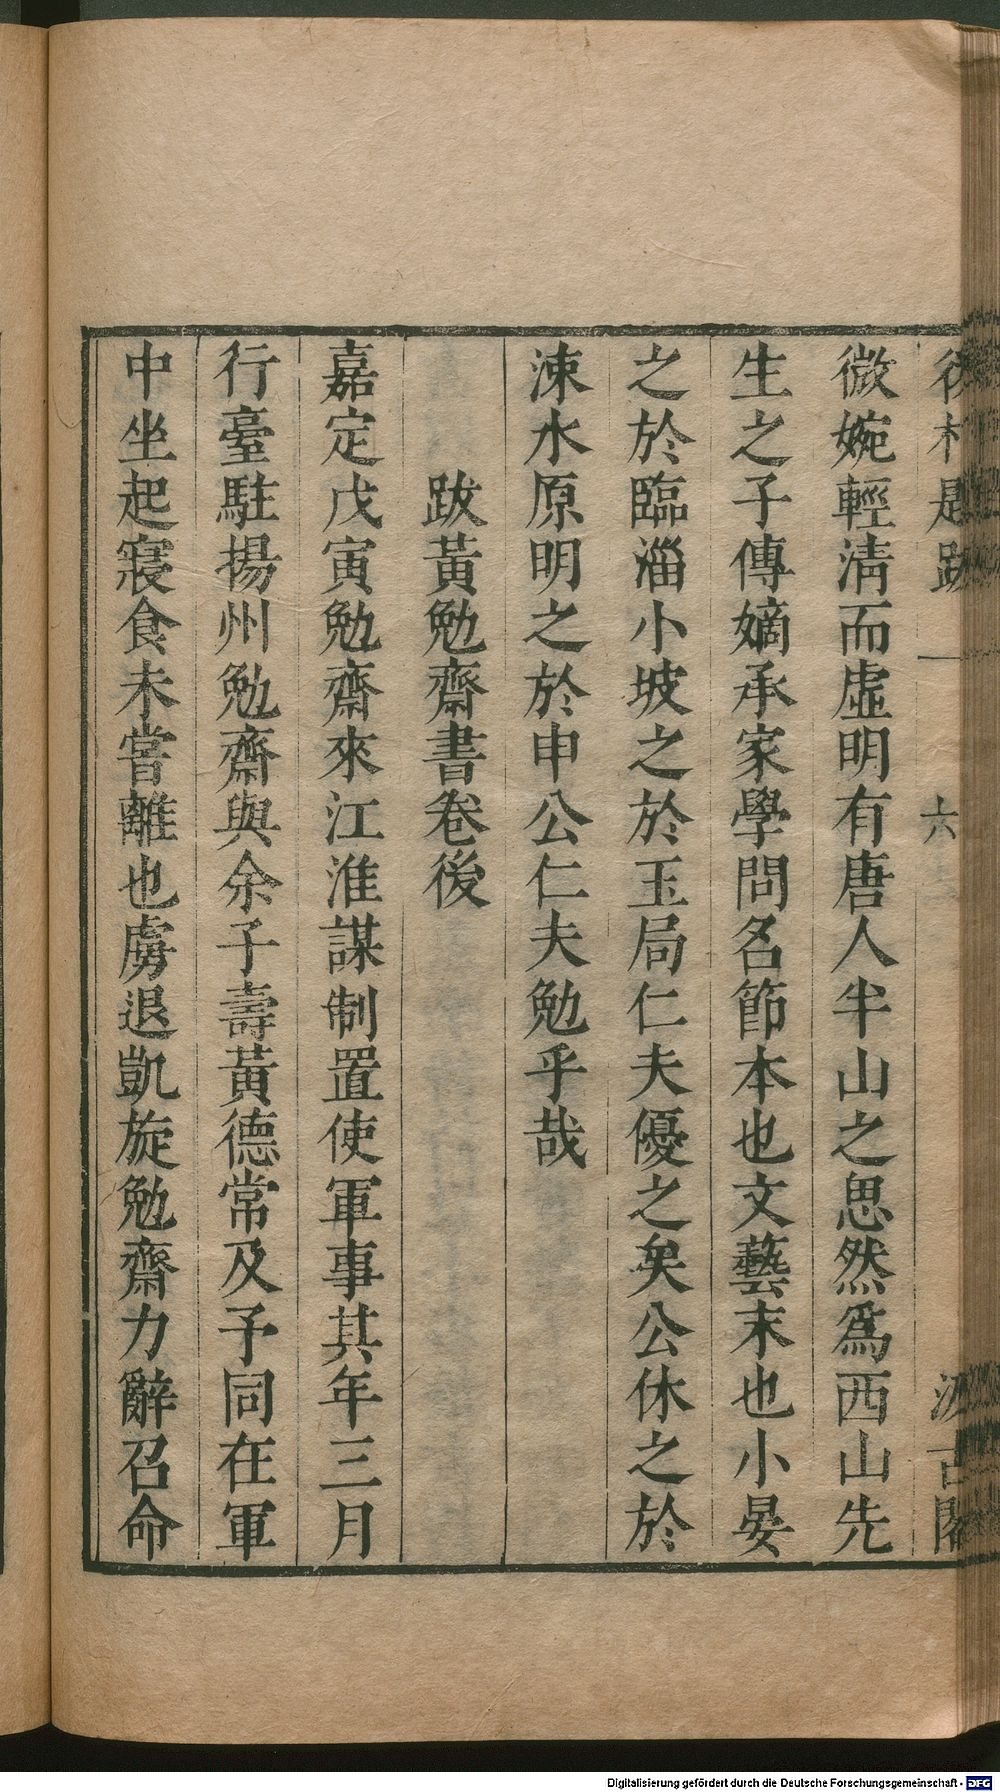 後村題跋 一 六 汲古閣
微婉輕清而虛明有唐人半山之思然爲西山先
生之子傳嫡承家學問名節本也文藝末也小晏
之於臨淄小坡之於玉局仁夫優之矣公休之於
涑水原明之於申公仁夫勉乎哉
跋黃勉齋書卷後
嘉定戊寅勉齋來江淮謀制置使軍事其年三月
行臺駐揚州勉齋與余子壽黃德常及予同在軍
中坐起寢食未嘗離也虜退凱旋勉齋力辭召命
Digitalisierung gefördert durch die Deutsche Forschungsgemeinschaft - DFG